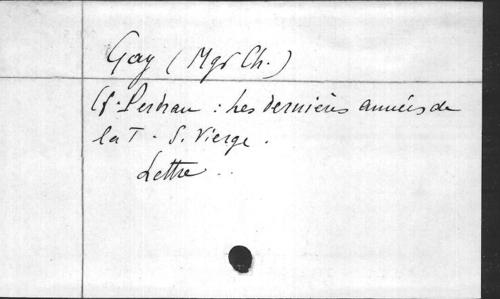 Gay (Mgr Ch.)
Cf. Perdrau : Les dernières années de
la T. S. Vierge.
Lettre ..